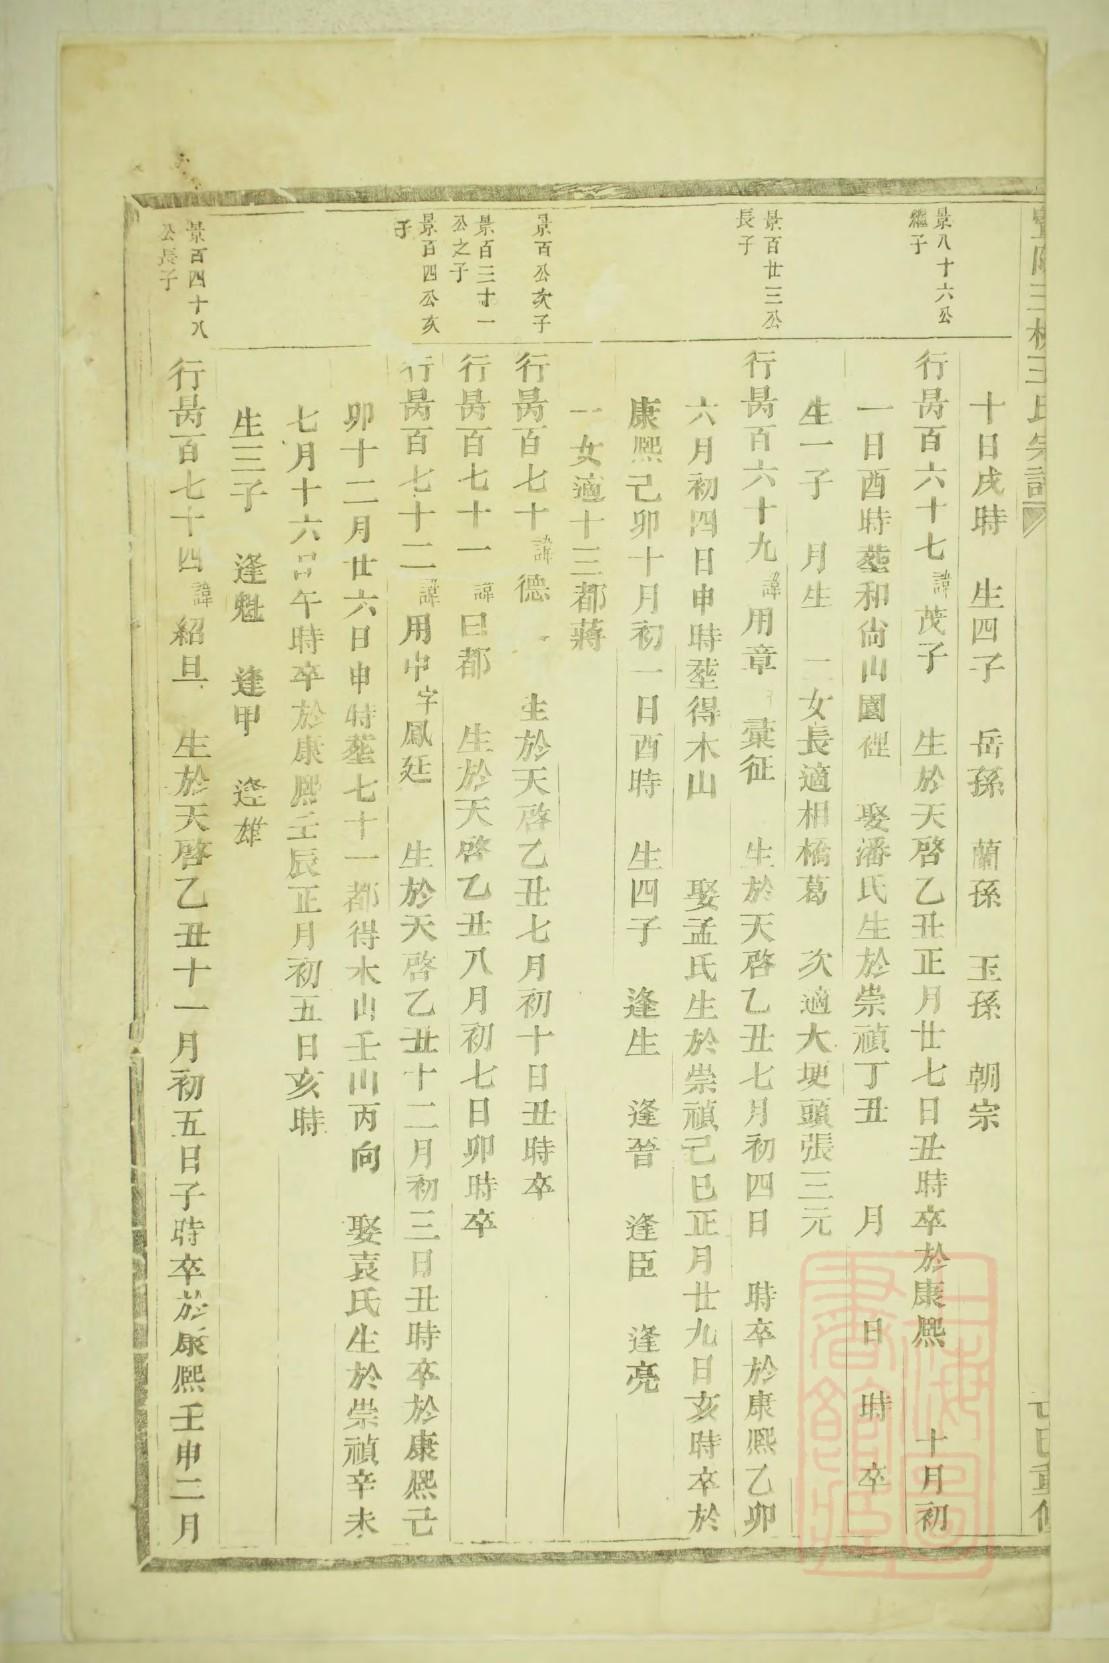 三橋王氏宗譜
十日戌時 生四子 岳孫 蘭孫 玉孫 朝宗
景八十六公
繼子
行昺百六十七諱茂子 生於天啓乙丑正月廿七日丑時卒於康熙 十月初
一日酉時塟和尙山園裡 娶潘氏生於崇禎丁丑 月 日 時 卒
生一子 月生 二女長適相橋葛 次適大埂頭張三元
景百廿三公
長子
行昺百六十九諱用章 彙征 生於天啓乙丑七月初四日 時卒於康熙乙卯
六月初四日申時塟得木山 娶孟氏生於崇禎己巳正月廿九日亥時卒於
康熙己卯十月初一日酉時 生四子 逢生 逢晉 逢臣 逢亮
一女適十三都蔣
景百公次子
行昺百七十諱德 生於天啓乙丑七月初十日丑時卒
景百三十一
公之子
行昺百七十一諱曰都 生於天啓乙丑八月初七日卯時卒
景百四公次
子
行昺百七十二諱用中字鳳廷 生於天啓乙丑十二月初三日丑時卒於康熙己
卯十二月廿六日申時塟七十一都得木山壬山丙向 娶袁氏生於崇禎辛未
七月十六日午時卒於康熙壬辰正月初五日亥時
生三子 逢魁 逢甲 逢雄
景百四十八
公長子
行昺百七十四諱紹旦 生於天啓乙丑十一月初五日子時卒於康熙壬申二月
上海圖書館藏